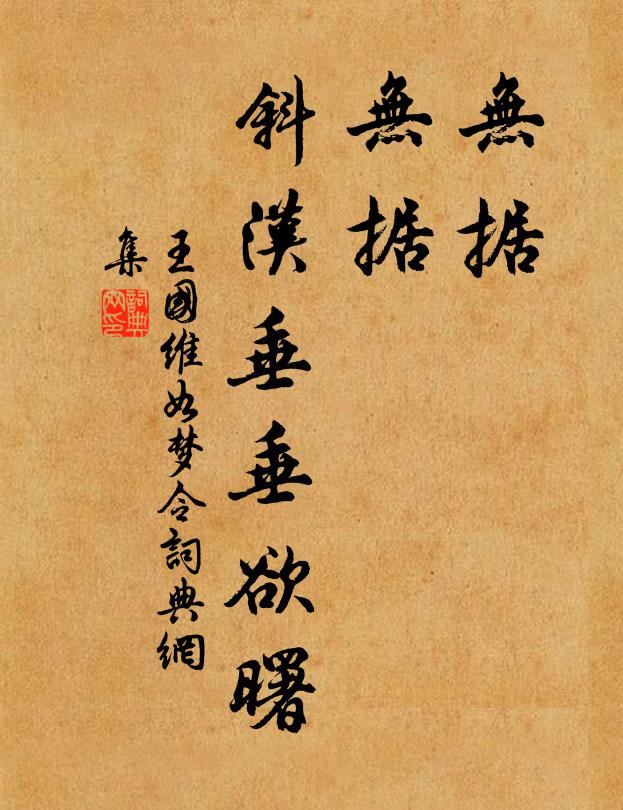 無据
無据
斜漢垂垂欲曙
王國維如梦令詞典網
集
詞典
网印